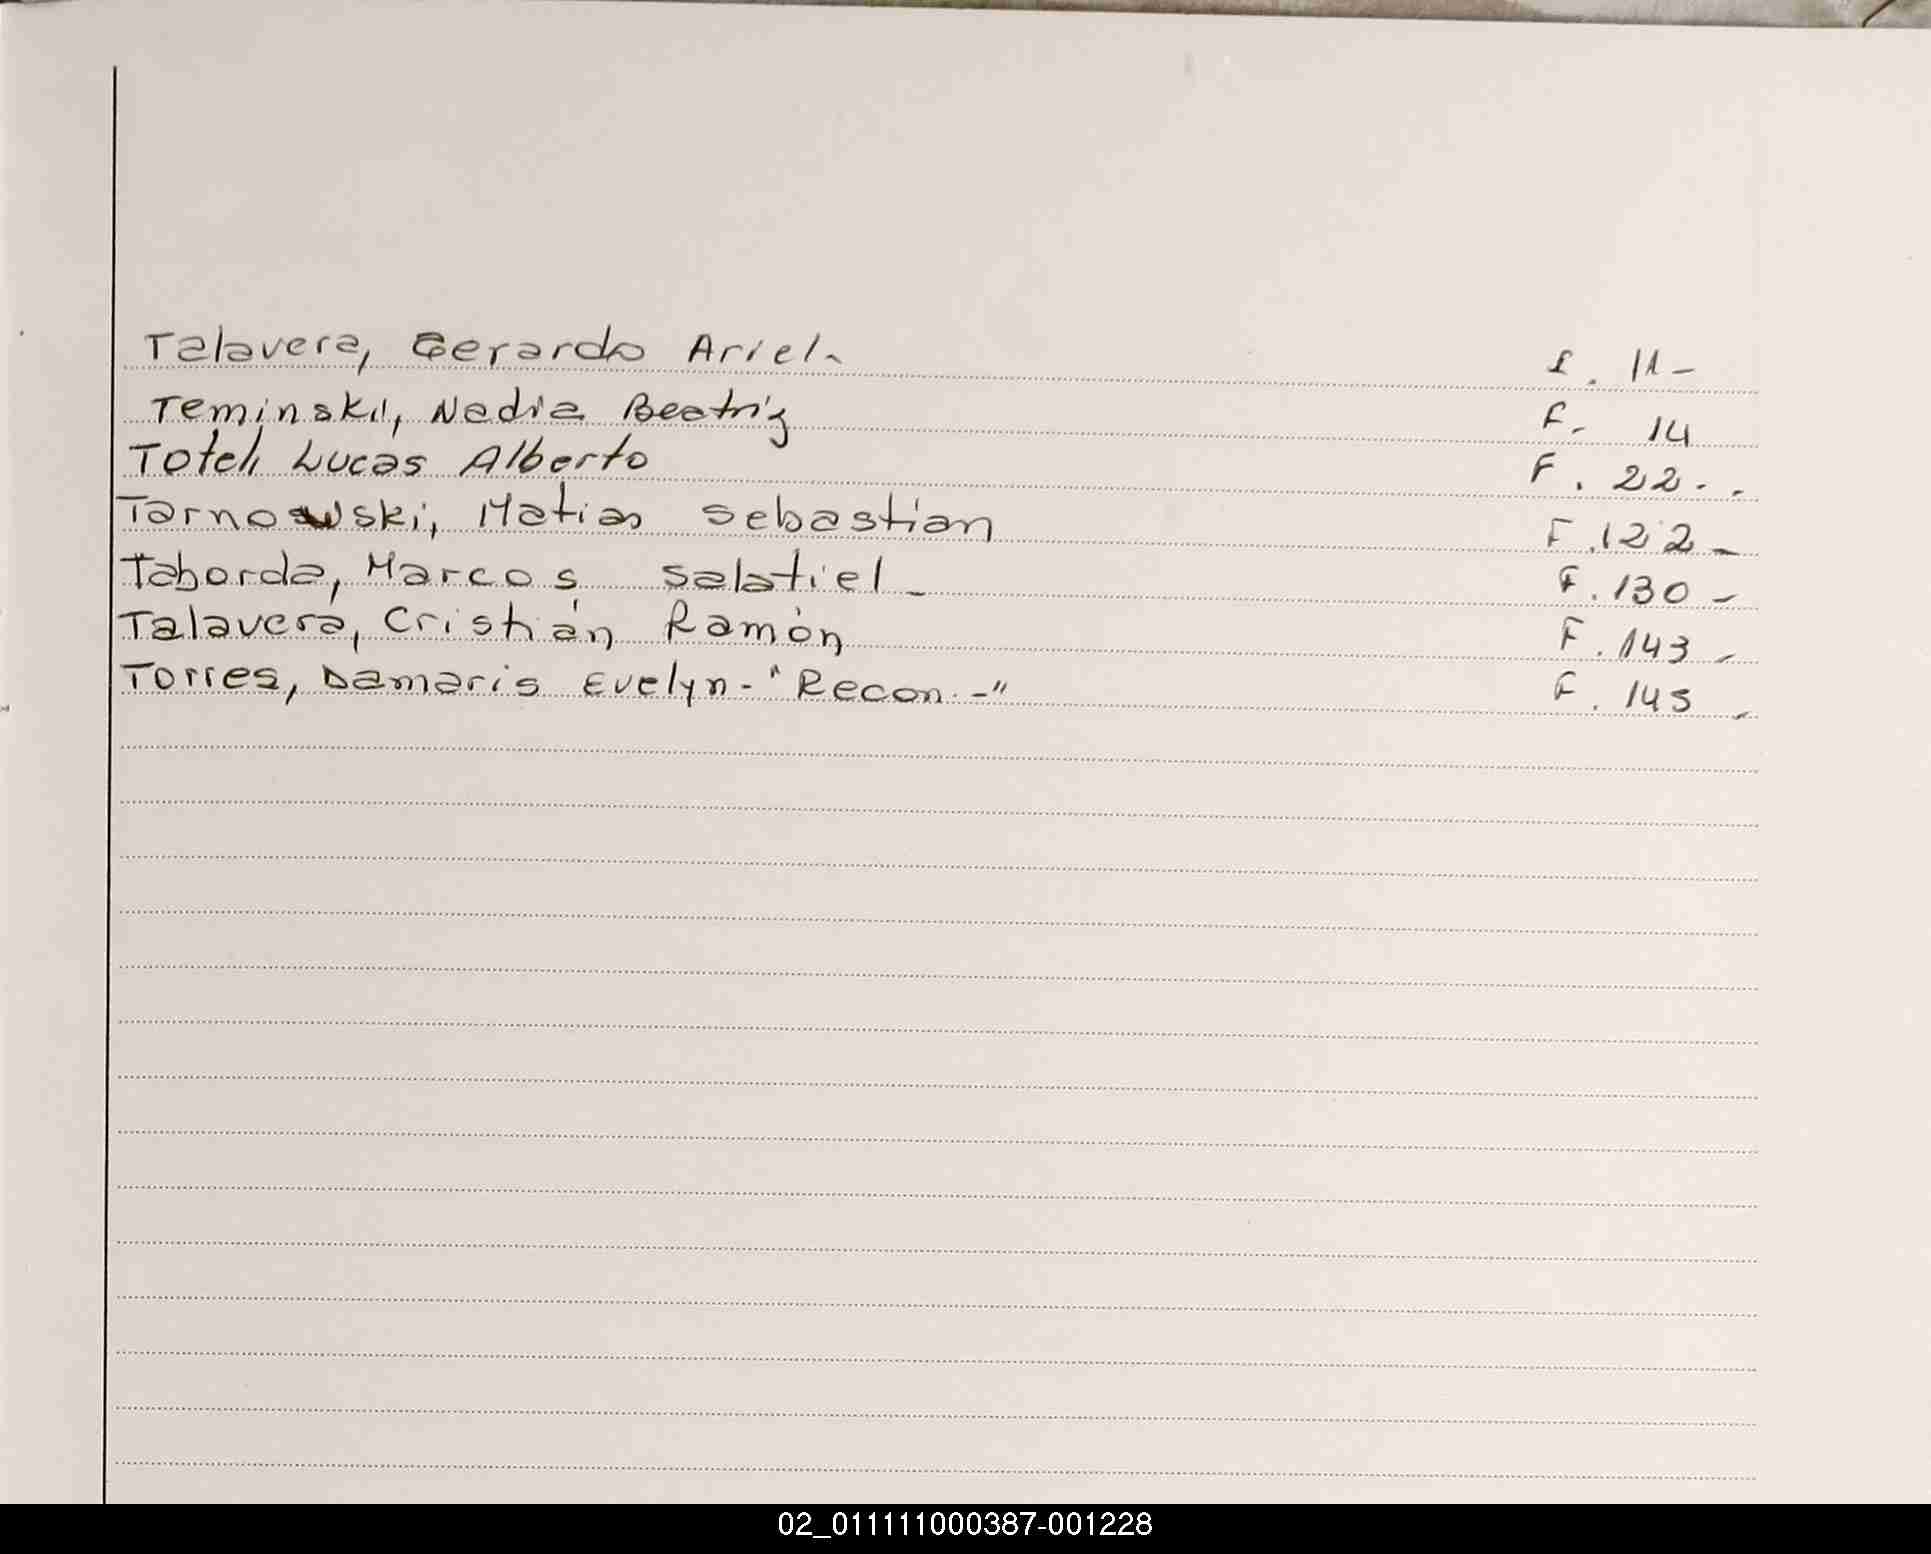 Talavera, Gerardo Ariel- F. 11-
Teminski, Nadia Beatriz F.- 14
Toteli Lucas Alberto F. 22.-
Tarnowski, Matias Sebastian F.122-
Taborda, Marcos Salatiel- F.130-
Talavera, Cristián Ramón F.143-
Torres, Damaris Evelyn-"Recon.-" F. 145-
02_011111000387-001228